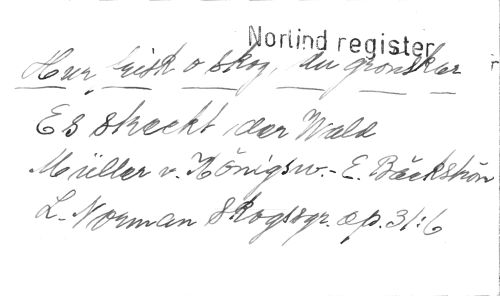 Norlind register
Hur frisk o skog, du grönskar
Es steckt der Wald
Müller v. Königsw.- E. Bäckström
L. Norman Skogssgr. op. 31:6